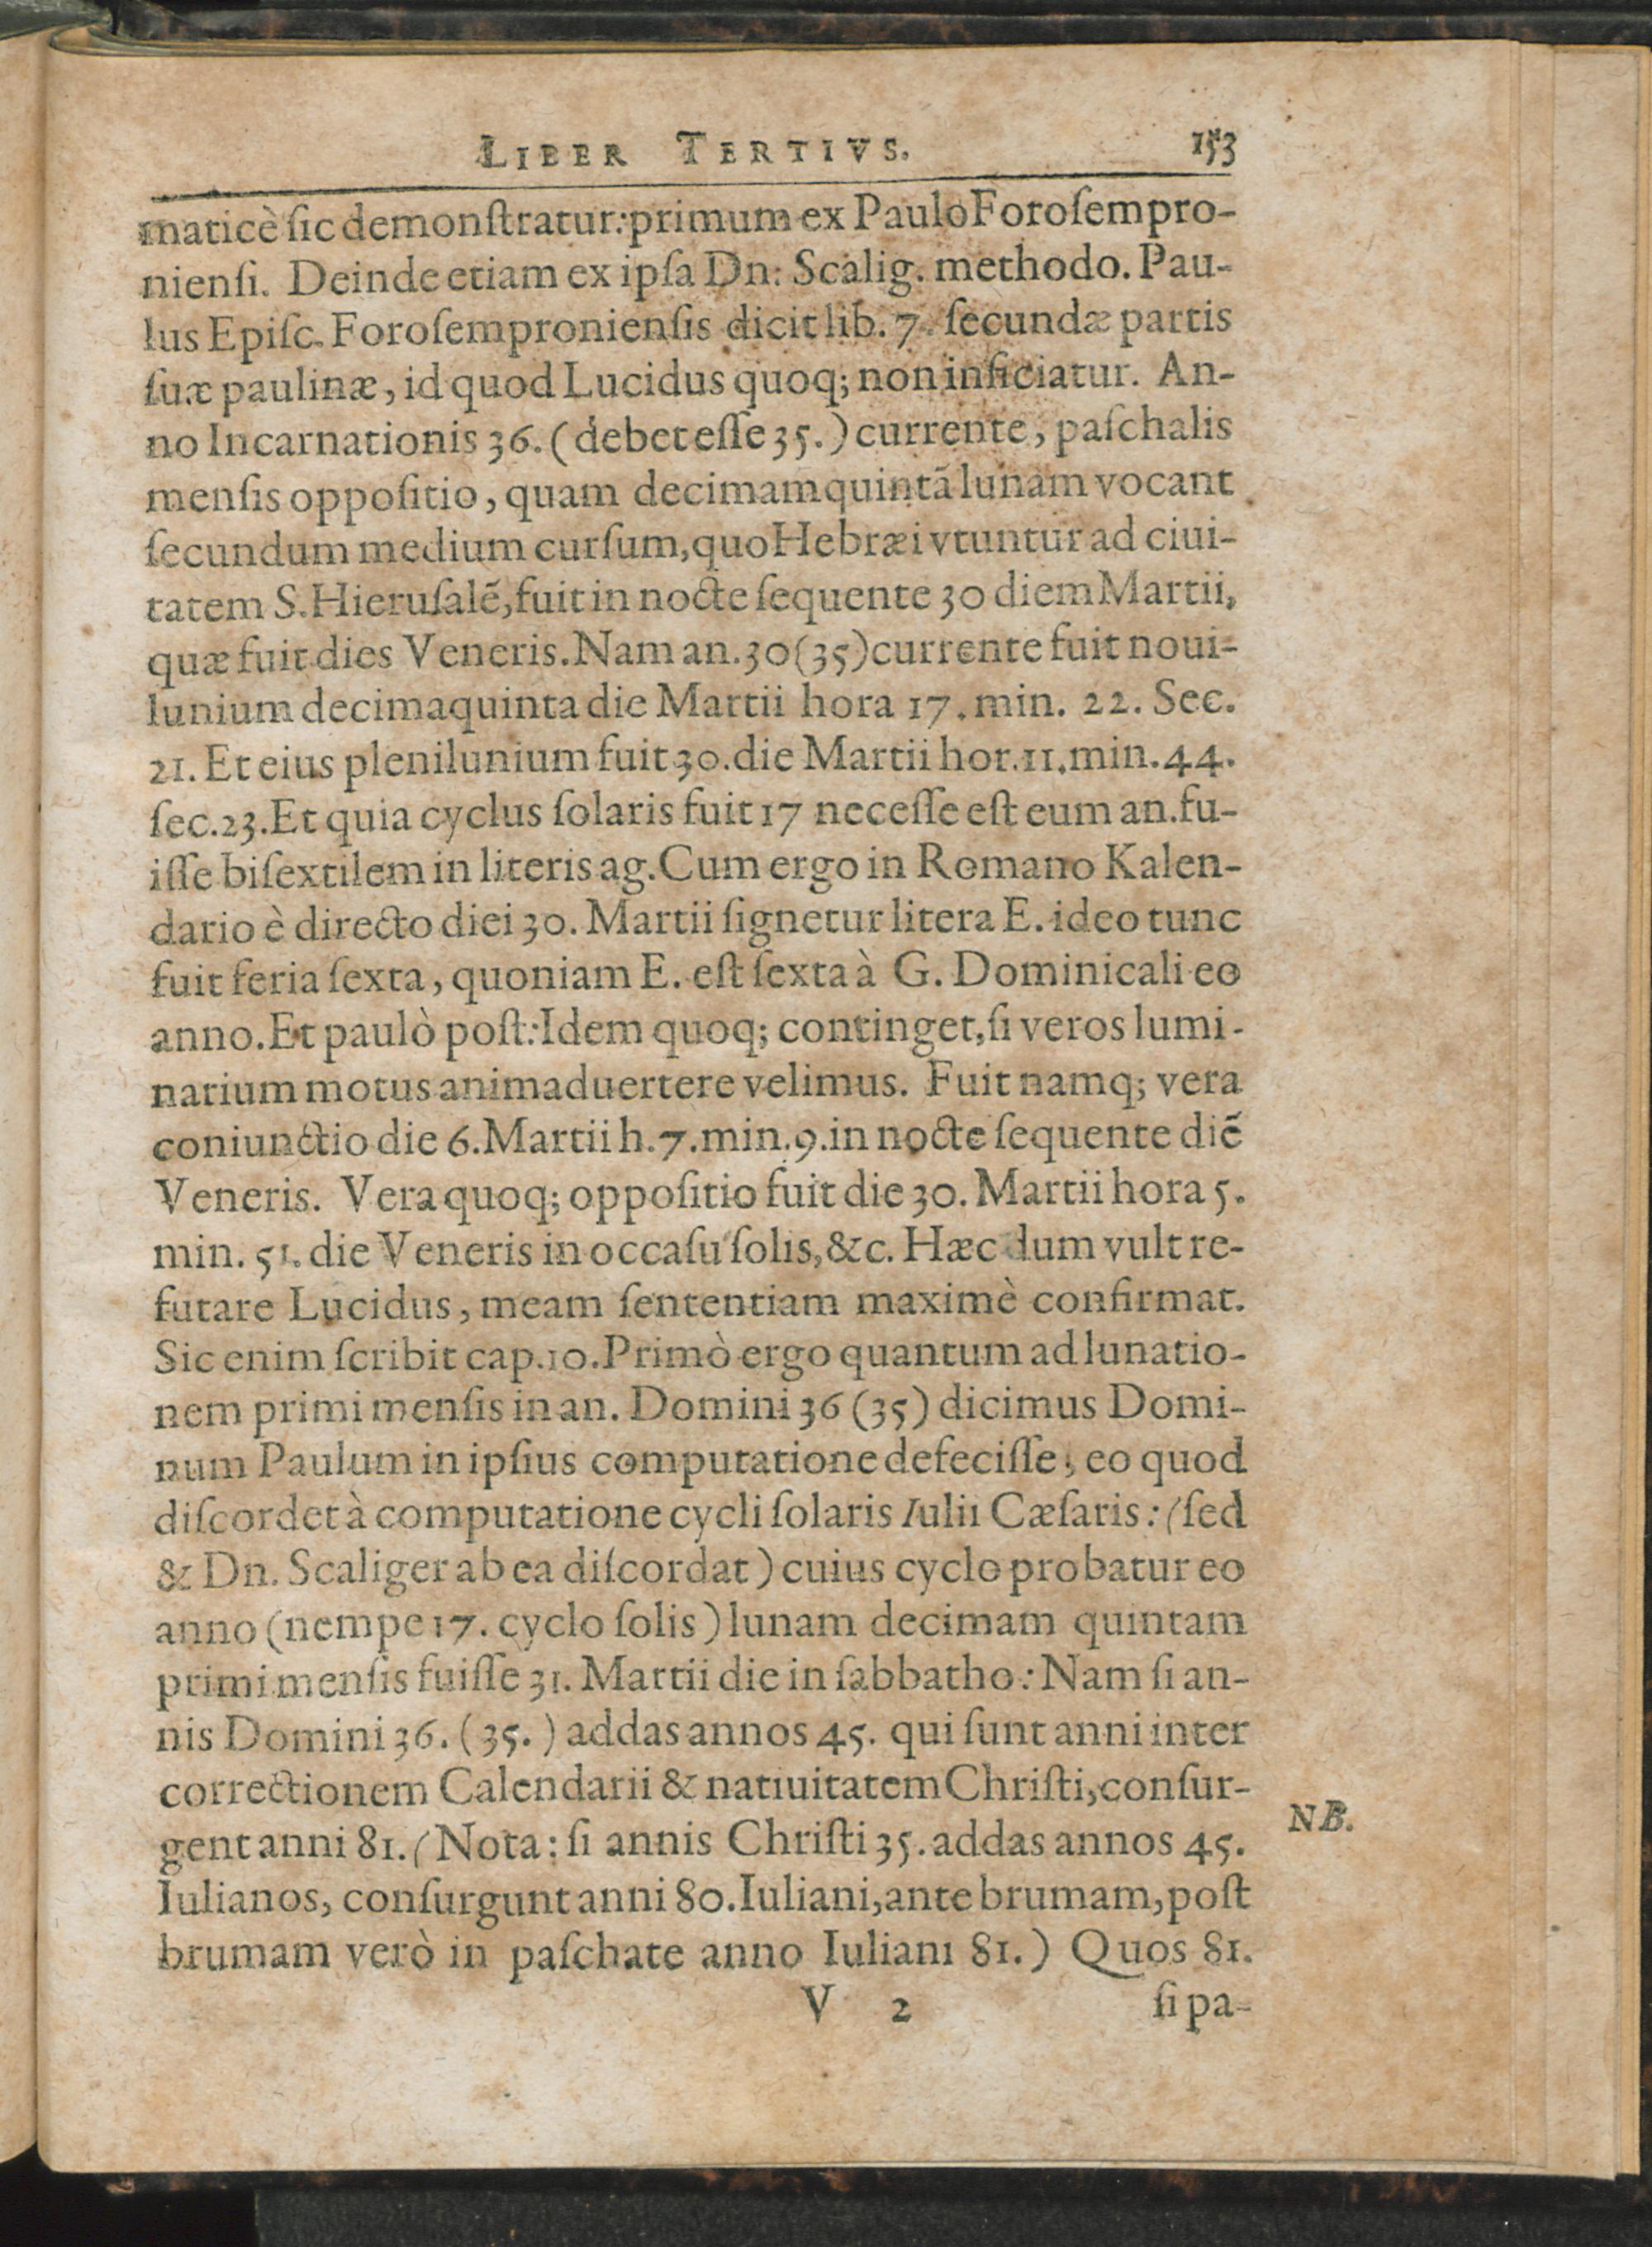 LIBER TERTIVS. 153
maticè ſic demonſtratur: primum ex Paulo Foroſempro-
nienſi. Deinde etiam ex ipſa Dn: Scalig. methodo. Pau-
lus Epiſc. Foroſempronienſis dicit lib. 7. ſecundæ partis
ſuæ paulinæ, id quod Lucidus quoq; non inficiatur. An-
no Incarnationis 36. (debet eſſe 35.) currente, paſchalis
menſis oppoſitio, quam decimamquintā lunam vocant
ſecundum medium curſum, quo Hebræi vtuntur ad ciui-
tatem S. Hieruſalē, fuit in nocte ſequente 30 diem Martii,
quæ fuit dies Veneris. Nam an. 30 (35) currente fuit noui-
lunium decimaquinta die Martii hora 17. min. 22. Sec.
21. Et eius plenilunium fuit 30. die Martii hor. 11. min. 44.
ſec. 23. Et quia cyclus ſolaris fuit 17 neceſſe eſt eum an. fu-
iſſe biſextilem in literis ag. Cum ergo in Romano Kalen-
dario è directo diei 30. Martii ſignetur litera E. ideo tunc
fuit feria ſexta, quoniam E. eſt ſexta à G. Dominicali eo
anno. Et paulò poſt: Idem quoq; continget, ſi veros lumi-
narium motus animaduertere velimus. Fuit namq; vera
coniunctio die 6. Martii h. 7. min. 9. in nocte ſequente diē
Veneris. Vera quoq; oppoſitio fuit die 30. Martii hora 5.
min. 51. die Veneris in occaſu ſolis, &c. Hæc dum vult re-
futare Lucidus, meam ſententiam maximè confirmat.
Sic enim ſcribit cap. 10. Primò ergo quantum ad lunatio-
nem primi menſis in an. Domini 36 (35) dicimus Domi-
num Paulum in ipſius computatione defeciſſe, eo quod
diſcordet à computatione cycli ſolaris Iulii Cæſaris: (ſed
& Dn. Scaliger ab ea diſcordat) cuius cyclo probatur eo
anno (nempe 17. cyclo ſolis) lunam decimam quintam
primi menſis fuiſſe 31. Martii die in ſabbatho: Nam ſi an-
nis Domini 36. (35.) addas annos 45. qui ſunt anni inter
correctionem Calendarii & natiuitatem Chriſti, conſur-
gent anni 81. (Nota: ſi annis Chriſti 35. addas annos 45.
NB.
Iulianos, conſurgunt anni 80. Iuliani, ante brumam, poſt
brumam verò in paſchate anno Iuliani 81.) Quos 81.
V 2 ſi pa-